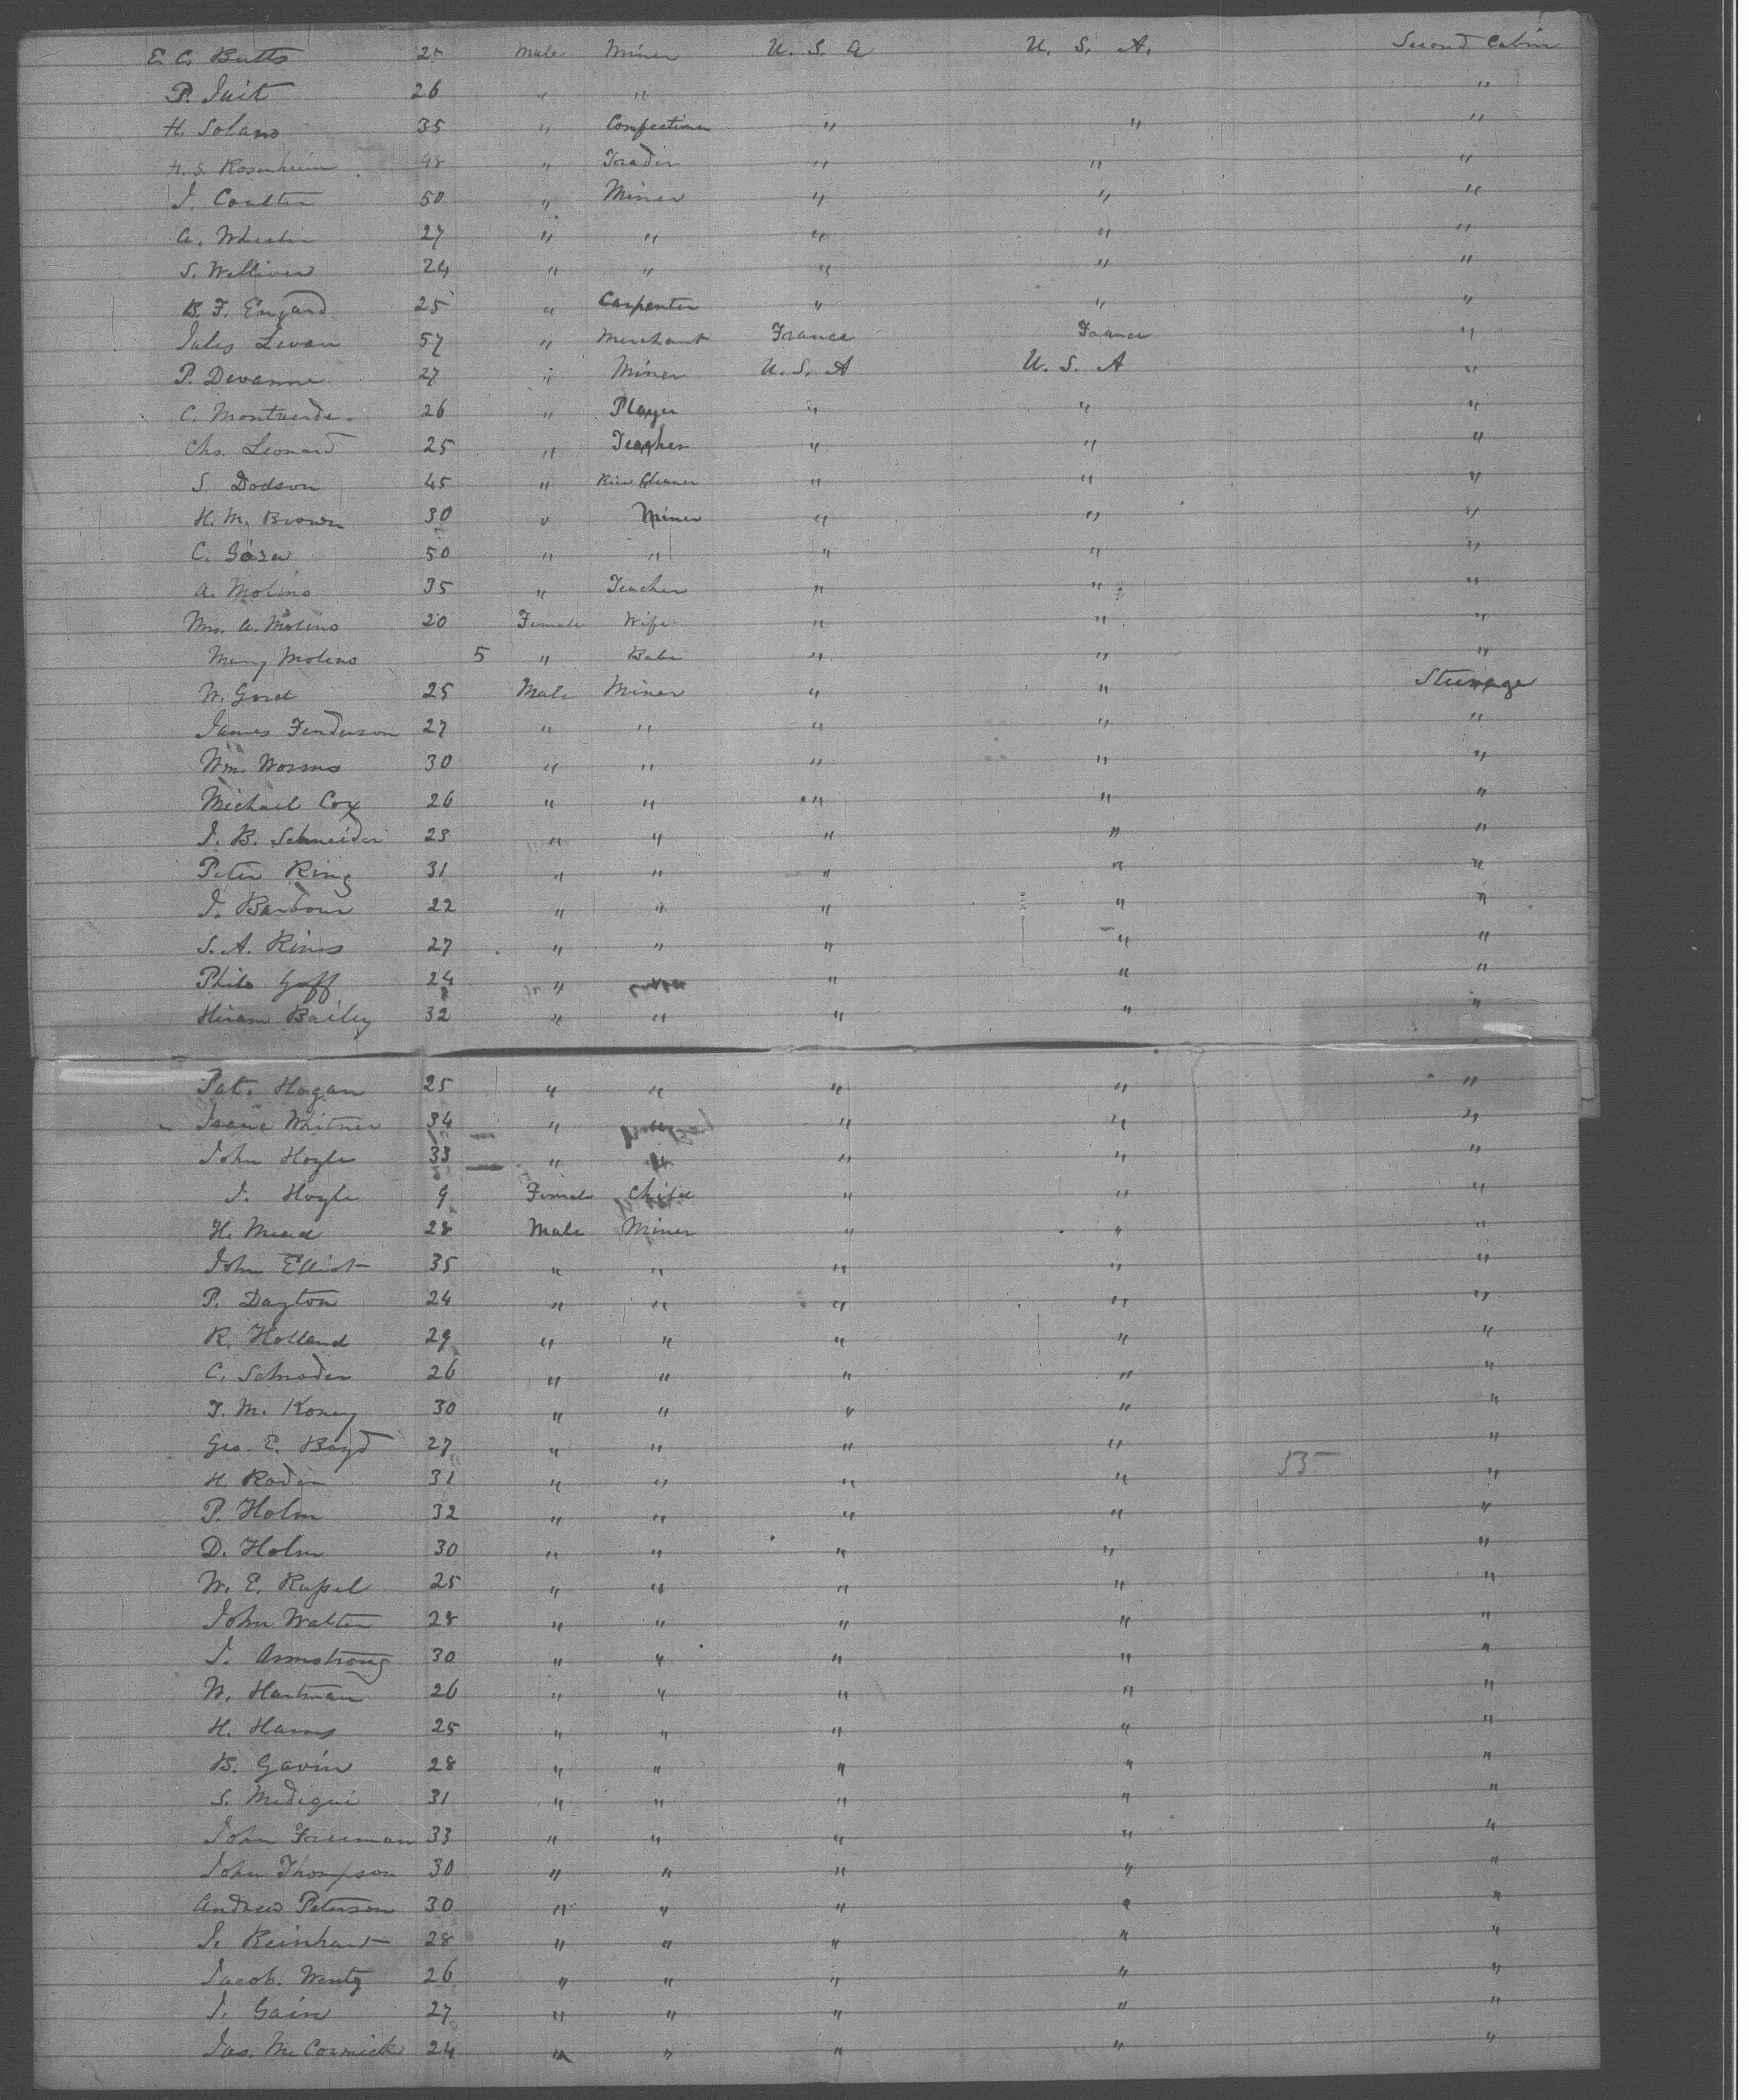 E. C. Butts 25 Male Miner U. S. A U. S. A. Second Cabin
P. Tait 26 " " "
H. Solano 35 " Confectioner " " "
H. S. Rosenheim 48 " Trader " " "
J. Coulter 50 " Miner " " "
A. Wheeler 27 " " " " "
S. Welliver 24 " " " " "
B. F. Engard 25 " Carpenter " " "
Jules Levan 57 " Merchant France France "
P. Devanne 27 " Miner U. S. A U. S. A "
C. Montverde 26 " Player " " "
Chs. Leonard 25 " Teacher " " "
S. Dodson 45 " Rice Cleaner " " "
H. M. Brown 30 " Miner " " "
C. Gosa 50 " " " " "
A. Molino 35 " Teacher " " "
Mrs. A. Molino 20 Female Wife " " "
Mary Molino 5 " Babe " " "
W. Gord 25 Male Miner " " Steerage
James Fenderson 27 " " " " "
Wm. Worms 30 " " " " "
Michael Cox 26 " " " " "
J. B. Schneider 23 " " " " "
Peter Ring 31 " " " " "
J. Barbour 22 " " " " "
S. A. Rines 27 " " " " "
Philo Goff 24 " " " "
Hiram Bailey 32 " " " " "
Pat. Hogan 25 " " " " "
Isaac Whitner 34 " " " "
John Hoyle 33 " " " " "
J. Hoyle 9 Female Child " " "
H. Mead 28 Male Miner " " "
John Elliot 35 " " " " "
P. Dayton 24 " " " " "
R. Holland 29 " " " " "
C. Schroder 26 " " " " "
T. M. Koney 30 " " " " "
Geo. E. Boyd 27 " " " " "
H. Roder 31 " " " " 55 "
P. Holm 32 " " " " "
D. Holm 30 " " " " "
W. E. Russel 25 " " " " "
John Walter 28 " " " " "
J. Armstrong 30 " " " " "
W. Hartman 26 " " " " "
H. Harms 25 " " " " "
B. Gavin 28 " " " " "
S. Medigui 31 " " " " "
John Freeman 33 " " " " "
John Thompson 30 " " " " "
Andrew Peterson 30 " " " " "
S. Reinhart 28 " " " " "
Jacob. Wentz 26 " " " " "
J. Gain 27 " " " " "
Jas. McCormick 24 " " " " "